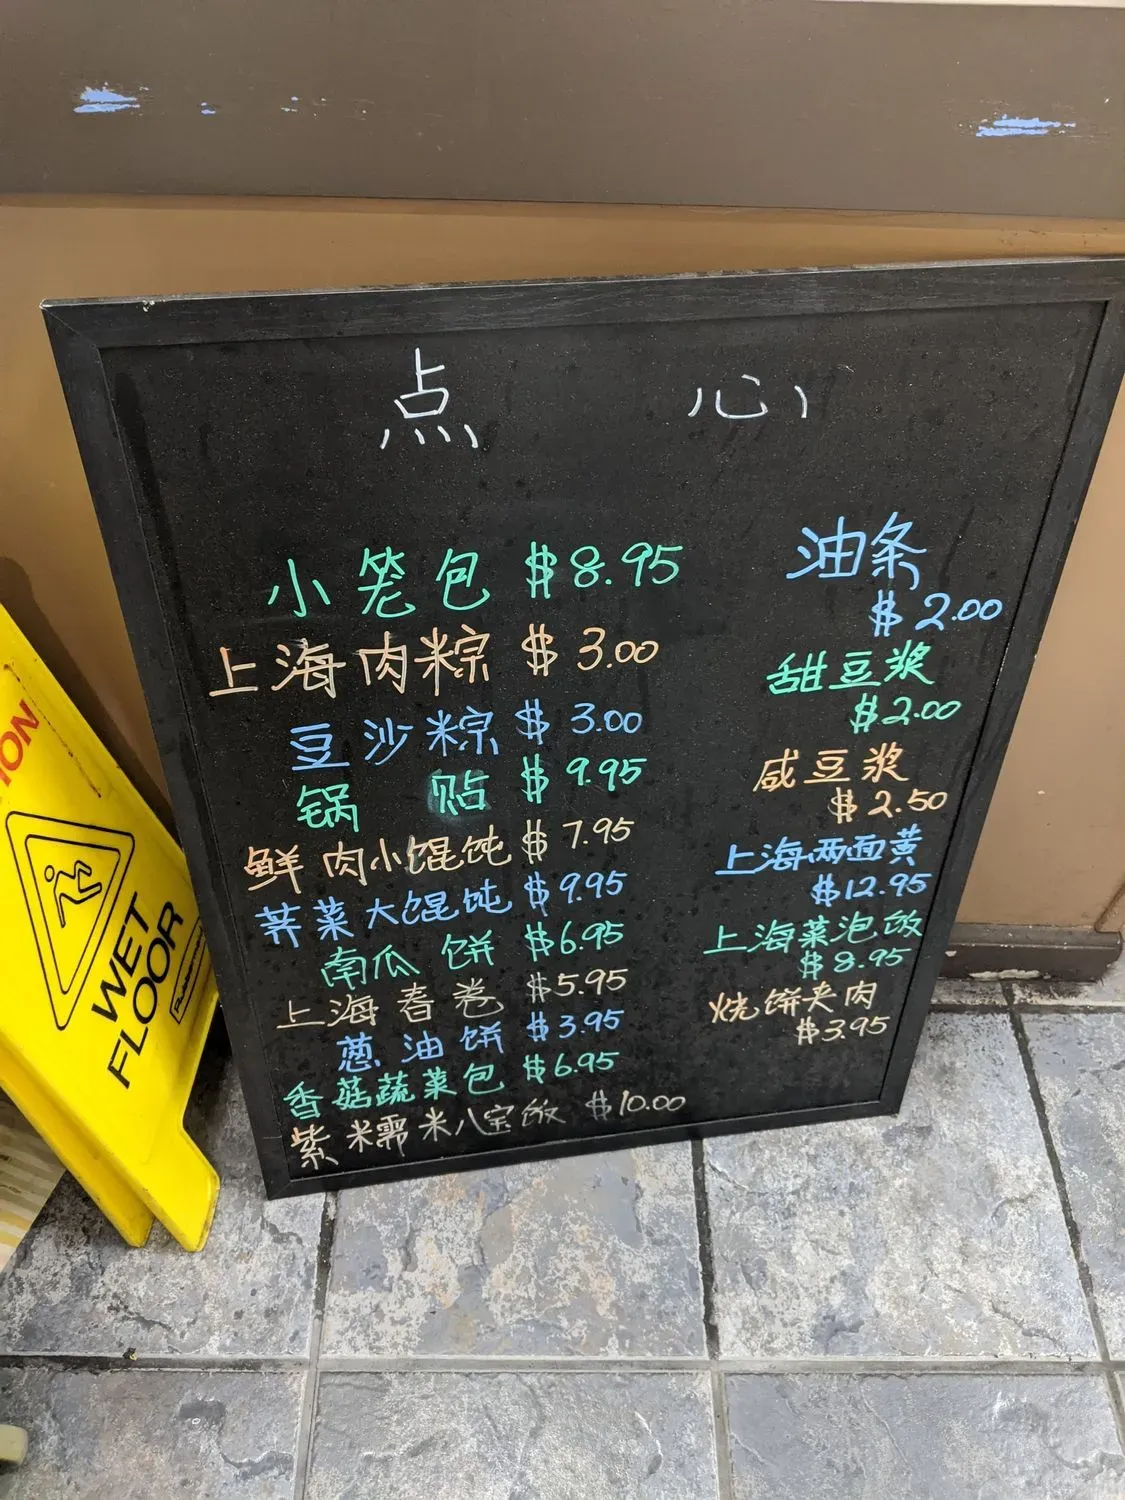 点 心
小笼包 $8.95
上海肉粽 $3.00
豆沙粽 $3.00
锅 贴 $9.95
鲜肉小馄饨 $7.95
荠菜大馄饨 $9.95
南瓜饼 $6.95
上海春卷 $5.95
葱油饼 $3.95
香菇蔬菜包 $6.95
紫糯米八宝饭 $10.00
油条
$2.00
甜豆浆
$2.00
咸豆浆
$2.50
上海两面黄
$12.95
上海菜泡饭
$8.95
烧饼夹肉
$3.95
ION
WET
FLOOR